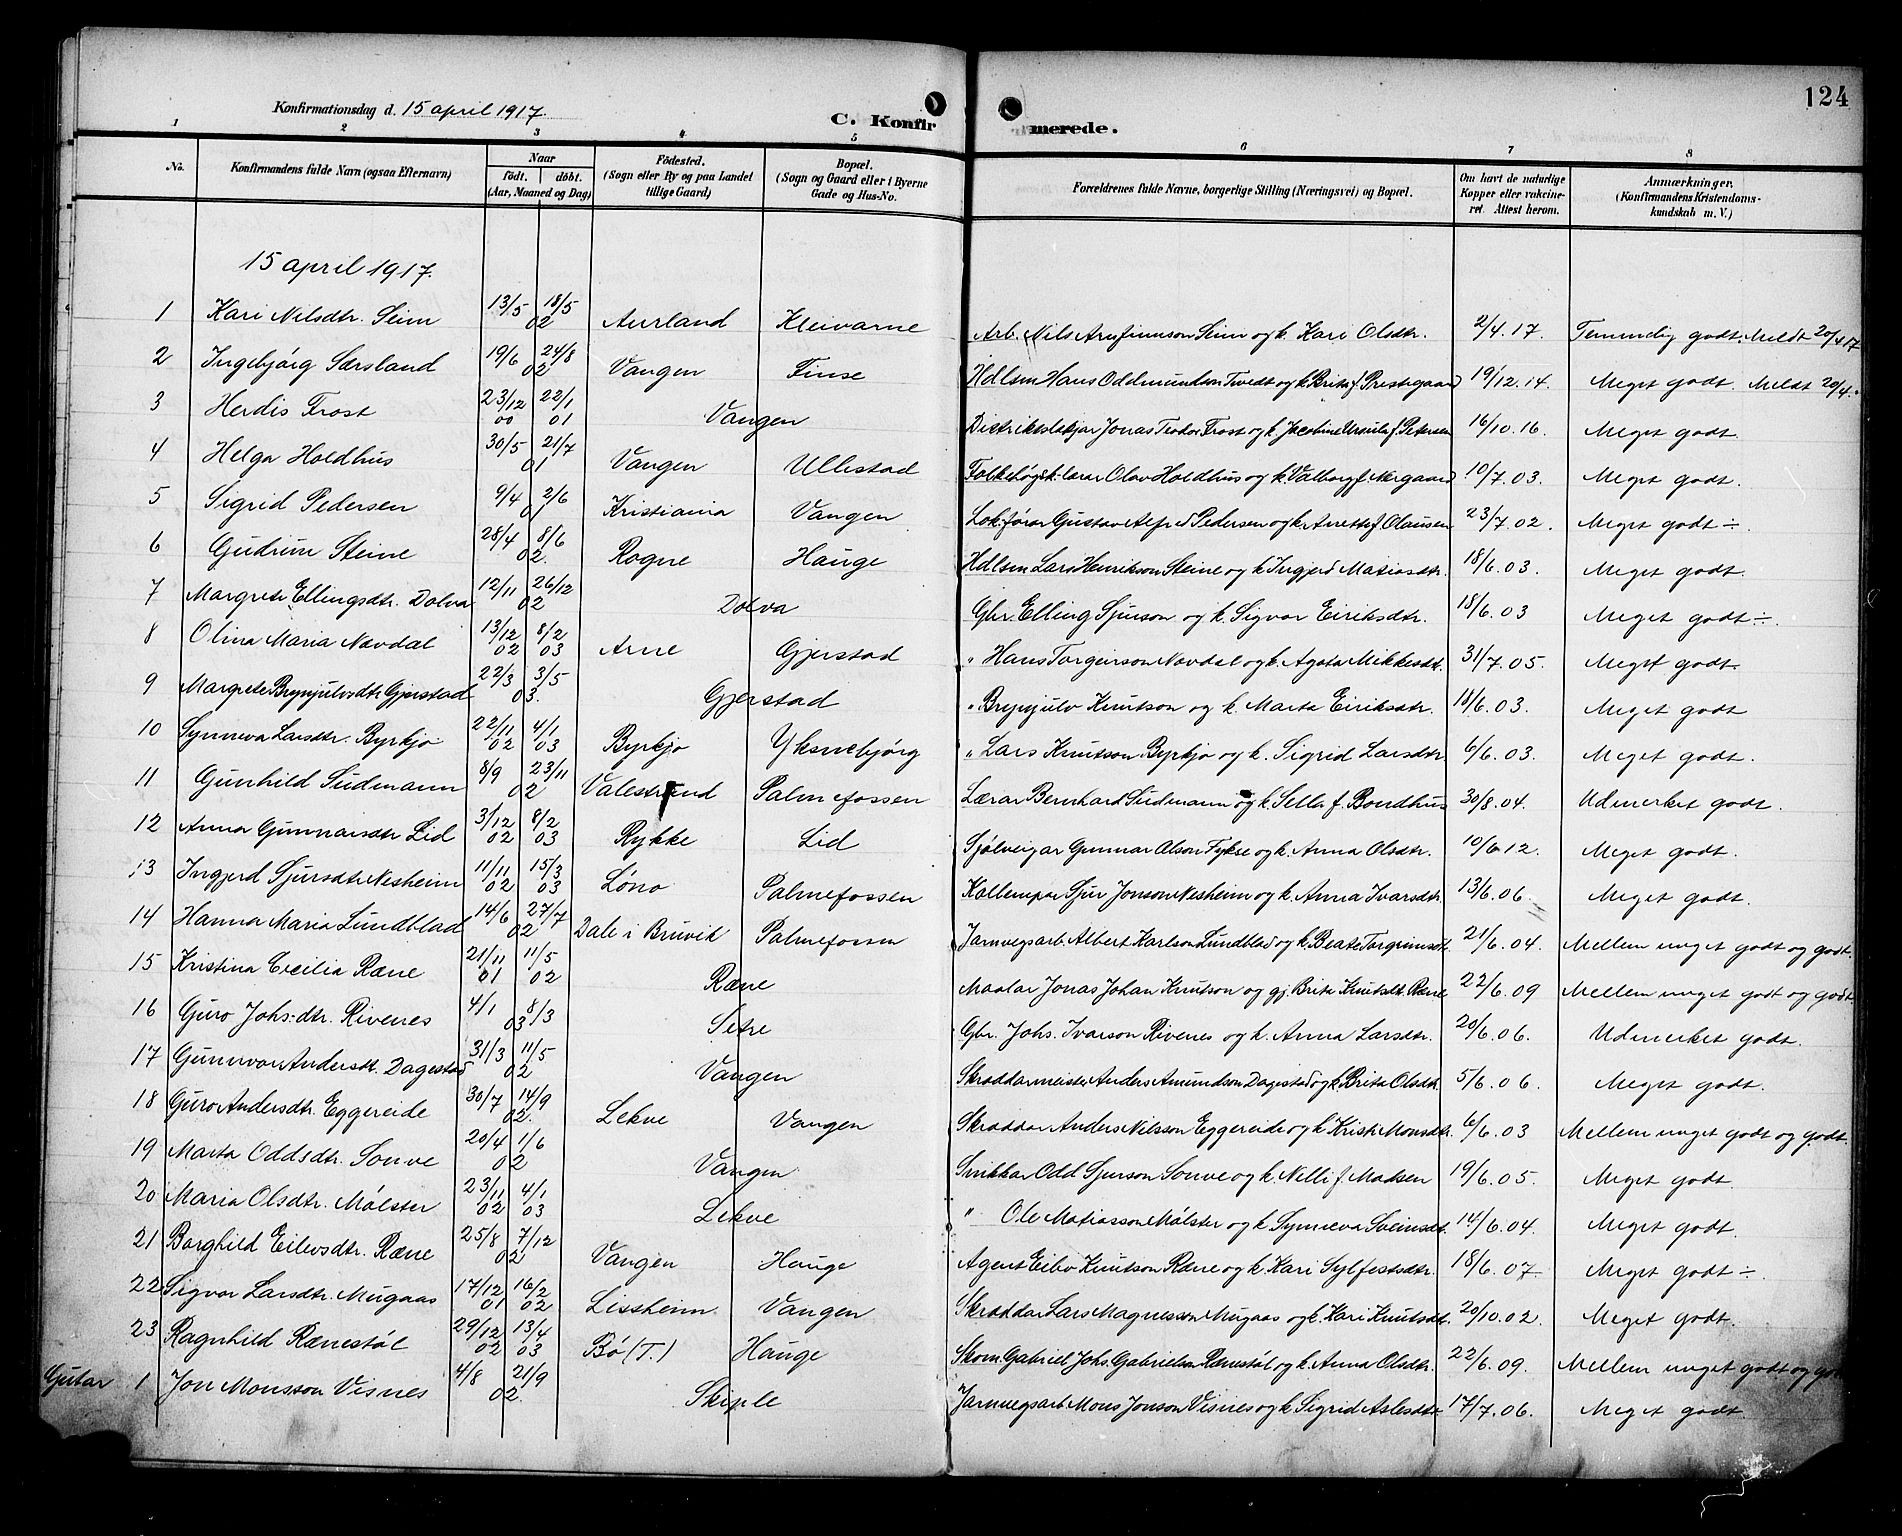 124
Konfirmationsdag d. 15 april 1917.
C. Konfirmerede.
1 2 3 4 5 6 7 8
No. Konfirmandens fulde Navn (ogsaa Efternavn) Naar født. døbt. (Aar, Maaned og Dag) Födested. (Sogn eller By og paa Landet tillige Gaard) Bopæl. (Sogn og Gaard eller i Byerne Gade og Hus-No. Forældrenes fulde Navne, borgerlige Stilling (Næringsvei) og Bopæl. Om havt de naturlige Kopper eller vakcineret. Attest herom. Anmærkninger. (Konfirmandens Kristendomskundskab m. V.)
15 april 1917.
1 Kari Nilsdtr. Seim 13/5 18/5 02 Aurland Kleivarne Arb. Nils Arnfinnson Seim og k. Kari Olsdtr. 2/4.17. Temmelig godt. Meldt 20/4 17
2 Ingebjørg Særsland 19/6 24/8 02 Vangen Finse Hdlsm Hans Oddmundson Tvedt og k. Brita f. Prestegaard 19/12.14. Meget godt. Meldt 20/4.
3 Herdis Frost 23/12 00 22/1 01 Vangen Distriktslækjar Jonas Teodor Frost og k. Jacobine Ursula f. Petersen 16/10.16. Meget godt.
4 Helga Holdhus 30/5 21/7 01 Vangen Ullestad Folkehøgsk.lærar Olav Holdhus og k. Valborg f. Nergaard 10/7.03. Meget godt.
5 Sigrid Pedersen 9/4 2/6 01 Kristiania Vangen Lok.førar Gustav Alfred Pedersen og k. Anette f. Olausen 23/7.02. Meget godt ÷.
6 Gudrun Steine 28/4 8/6 02. Rogne Hauge Hdlsm Lars Henrikson Steine og k. Ingjerd Matiasdtr. 18/6.03. Meget godt.
7 Margrete Ellingsdtr. Dolva 12/11 26/12 02 Dolva Gbr. Elling Sjurson og k. Sigvor Eiriksdtr. 18/6.03 Meget godt ÷.
8 Olina Maria Navdal 13/12 02 8/2 03 Arne Gjerstad " Hans Torgeirson Navdal og k. Agata Mikkesdt. 31/7.05. Meget godt.
9 Margrete Brynjulvsdtr Gjerstad 22/3 3/5 03. Gjerstad " Brynjulv Knutson og k. Marta Eiriksdtr. 18/6.03. Meget godt
10 Synneva Larsdtr. Byrkjo 22/11 02 4/1 03 Byrkjo Yksnebjørg " Lars Knutson Byrkjo og k. Sigrid Larsdtr 6/6.03. Meget godt.
11 Gunhild Sudmann 8/9 23/11 02 Valestrand Palmefossen Lærar Bernhard Sudmann og k. Sella f. Bondhus 30/8.04. Udmerket godt.
12 Anna Gunnarsdtr Lid 3/12 02 8/2 03 Rykke Lid Sjølveigar Gunnar Olson Fykse og k. Anna Olsdtr. 10/6.12. Meget godt.
13 Ingjerd Sjursdtr Nesheim 11/11 02 15/3 03 Løno Palmefossen Sjur Jonson Nesheim og k. Anna Ivarsdtr. 13/6.06. Meget godt.
14 Hanna Maria Lundblad 14/6 27/7 02 Dale i Bruvik Palmefossen Jarnvegsarb. Albert Karlson Lundblad og k. Beata Torgrimsdt. 21/6.04. Mellem meget godt og godt.
15 Kristina Cecilia Ræne 21/11 01 11/5 02 Ræne Maalar Jonas Johan Knutson og gj. Brita Knutsdt. Ræne 22/6.09 Mellem meget godt og godt.
16 Guro Johs.dtr. Rivenes 4/1 8/3 03 Setre Gbr. Johs. Ivarson Rivenes og k. Anna Larsdtr. 20/6.06. Udmerket godt.
17 Gunnvor Andersdt. Dagestad 31/3 11/5 02 Vangen Skræddarmeister Anders Amundson Dagestad og k. Brita Olsdtr. 5/6.06. Meget godt.
18 Guro Andersdtr. Eggereide 30/7 14/9 02. Lekve Vangen Skræddar Anders Nilsson Eggereide og k. Kristi Monsdtr. 6/6.03 Mellem meget godt og godt.
19 Marta Oddsdtr. Sonve 20/4 1/6 02 Vangen Snikkar Odd Sjurson Sonve og k. Nelli f. Madsen 19/6.05. Meget godt.
20 Maria Olsdtr. Mølster 23/11 02 4/1 03 Lekve " Ole Matiasson Mølster og k. Synneva Sveinsdt. 14/6.04. Meget godt.
21 Borghild Eilevsdtr. Ræne 25/8 7/12 02 Vangen Hauge Agent Eilev Knutson Ræne og k. Kari Sylfestsdtr. 18/6.07 Meget godt ÷.
22 Sigvor Larsdtr. Mugaas 17/12 01 16/2 02 Lissheim Vangen Skræddar Lars Magnesson Mugaas og k. Kari Knutsdt. 20/10.02. Meget godt.
23 Ragnhild Rænestøl 29/12 02 13/4 03 Bø (T.) Hauge Skom. Gabriel Johs. Gabrielsen Rænestøl og k. Anna Olsdtr. 22/6.09. Mellem meget godt og
Gutar 1 Jon Monsson Visnes 4/8 21/9 02. Skiple Jarnvegsarb. Mons Jonson Visnes og k. Sigrid Aslesdtr. 17/7.06. Meget godt.